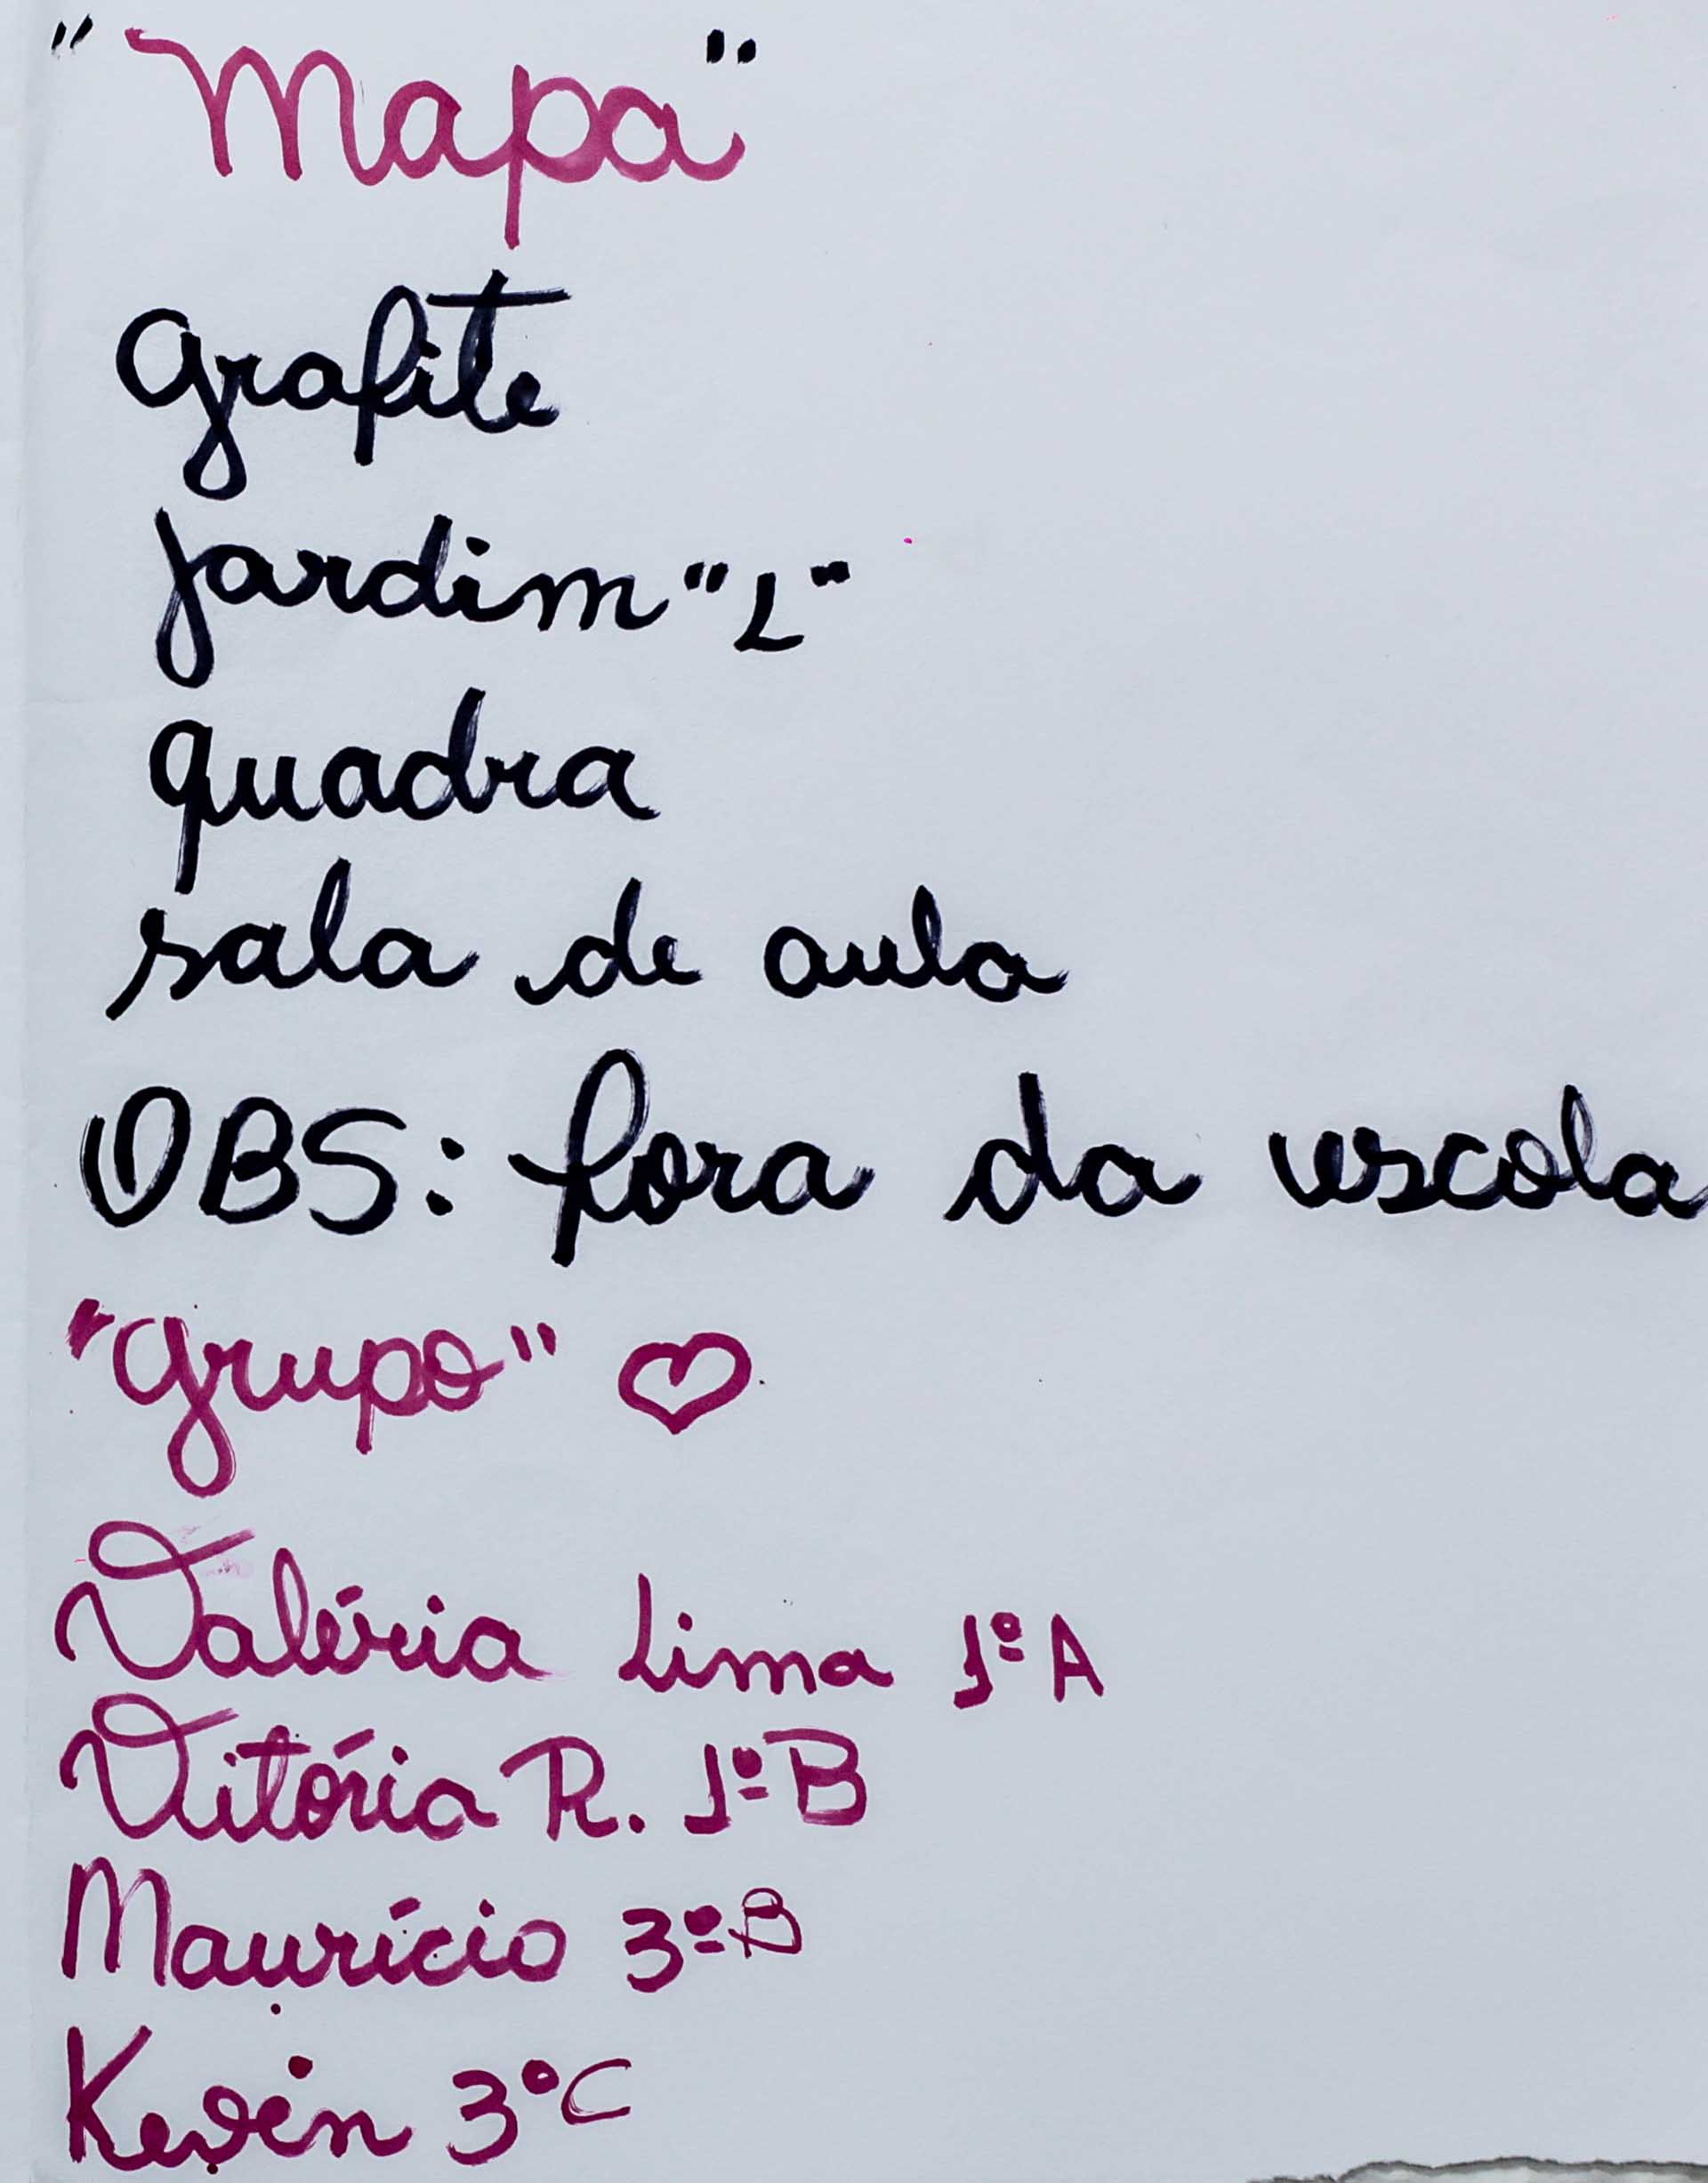 "Mapa"
grafite
jardim "L"
quadra
sala de aula
OBS: fora da escola
"grupo" ♡
Valéria Lima 1º A
Vitória R. 1º B
Maurício 3º B
Kevin 3º C